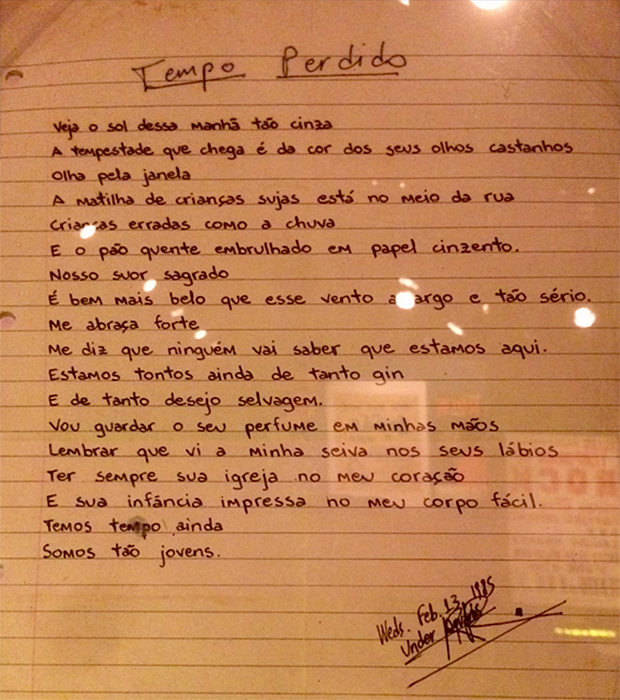 Tempo Perdido
Veja o sol dessa manhã tão cinza
A tempestade que chega é da cor dos seus olhos castanhos
Olha pela janela
A matilha de crianças sujas está no meio da rua
Crianças erradas como a chuva
E o pão quente embrulhado em papel cinzento.
Nosso suor sagrado
É bem mais belo que esse vento amargo e tão sério.
Me abraça forte
Me diz que ninguém vai saber que estamos aqui.
Estamos tontos ainda de tanto gin
E de tanto desejo selvagem.
Vou guardar o seu perfume em minhas mãos
Lembrar que vi a minha seiva nos seus lábios
Ter sempre sua igreja no meu coração
E sua infância impressa no meu corpo fácil.
Temos tempo ainda
Somos tão jovens.
Weds. Feb. 13, 1985
Under